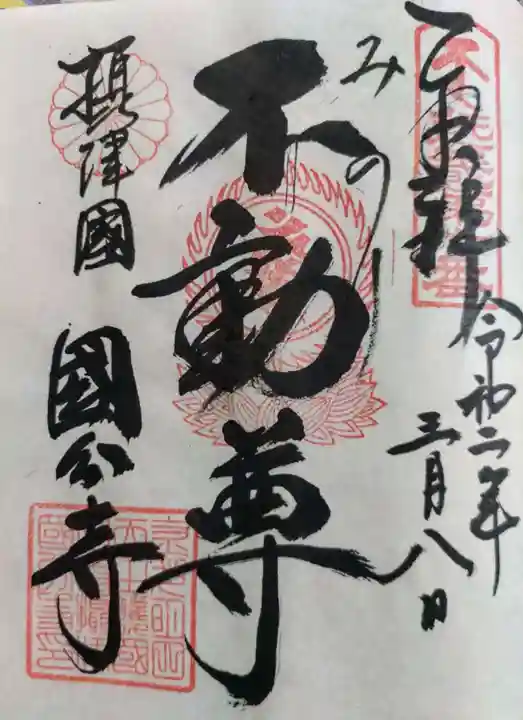 奉拝
令和二年
三月八日
みの
不動尊
摂津國
國分寺